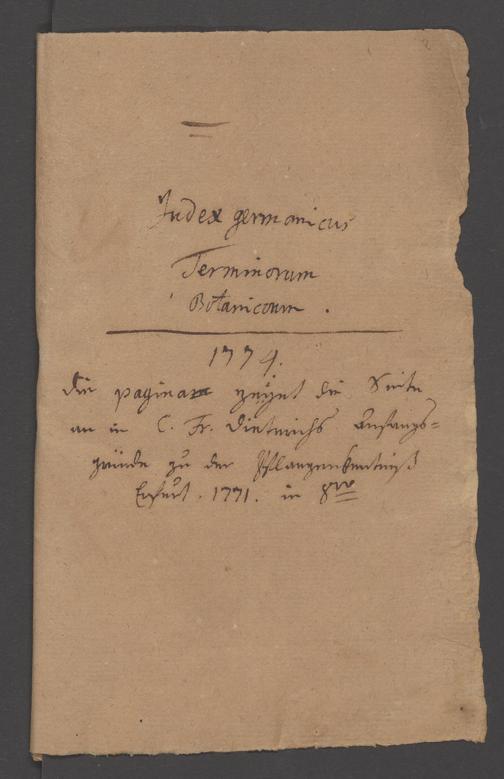 Index germanicus
Terminorum
Botanicorum.
1774.
die pagina zeiget die Seite
an in C. Fr. Dietrichs Anfangs=
gründe zu der Pflanzenkentniß
Erfurt. 1771. in 8vo